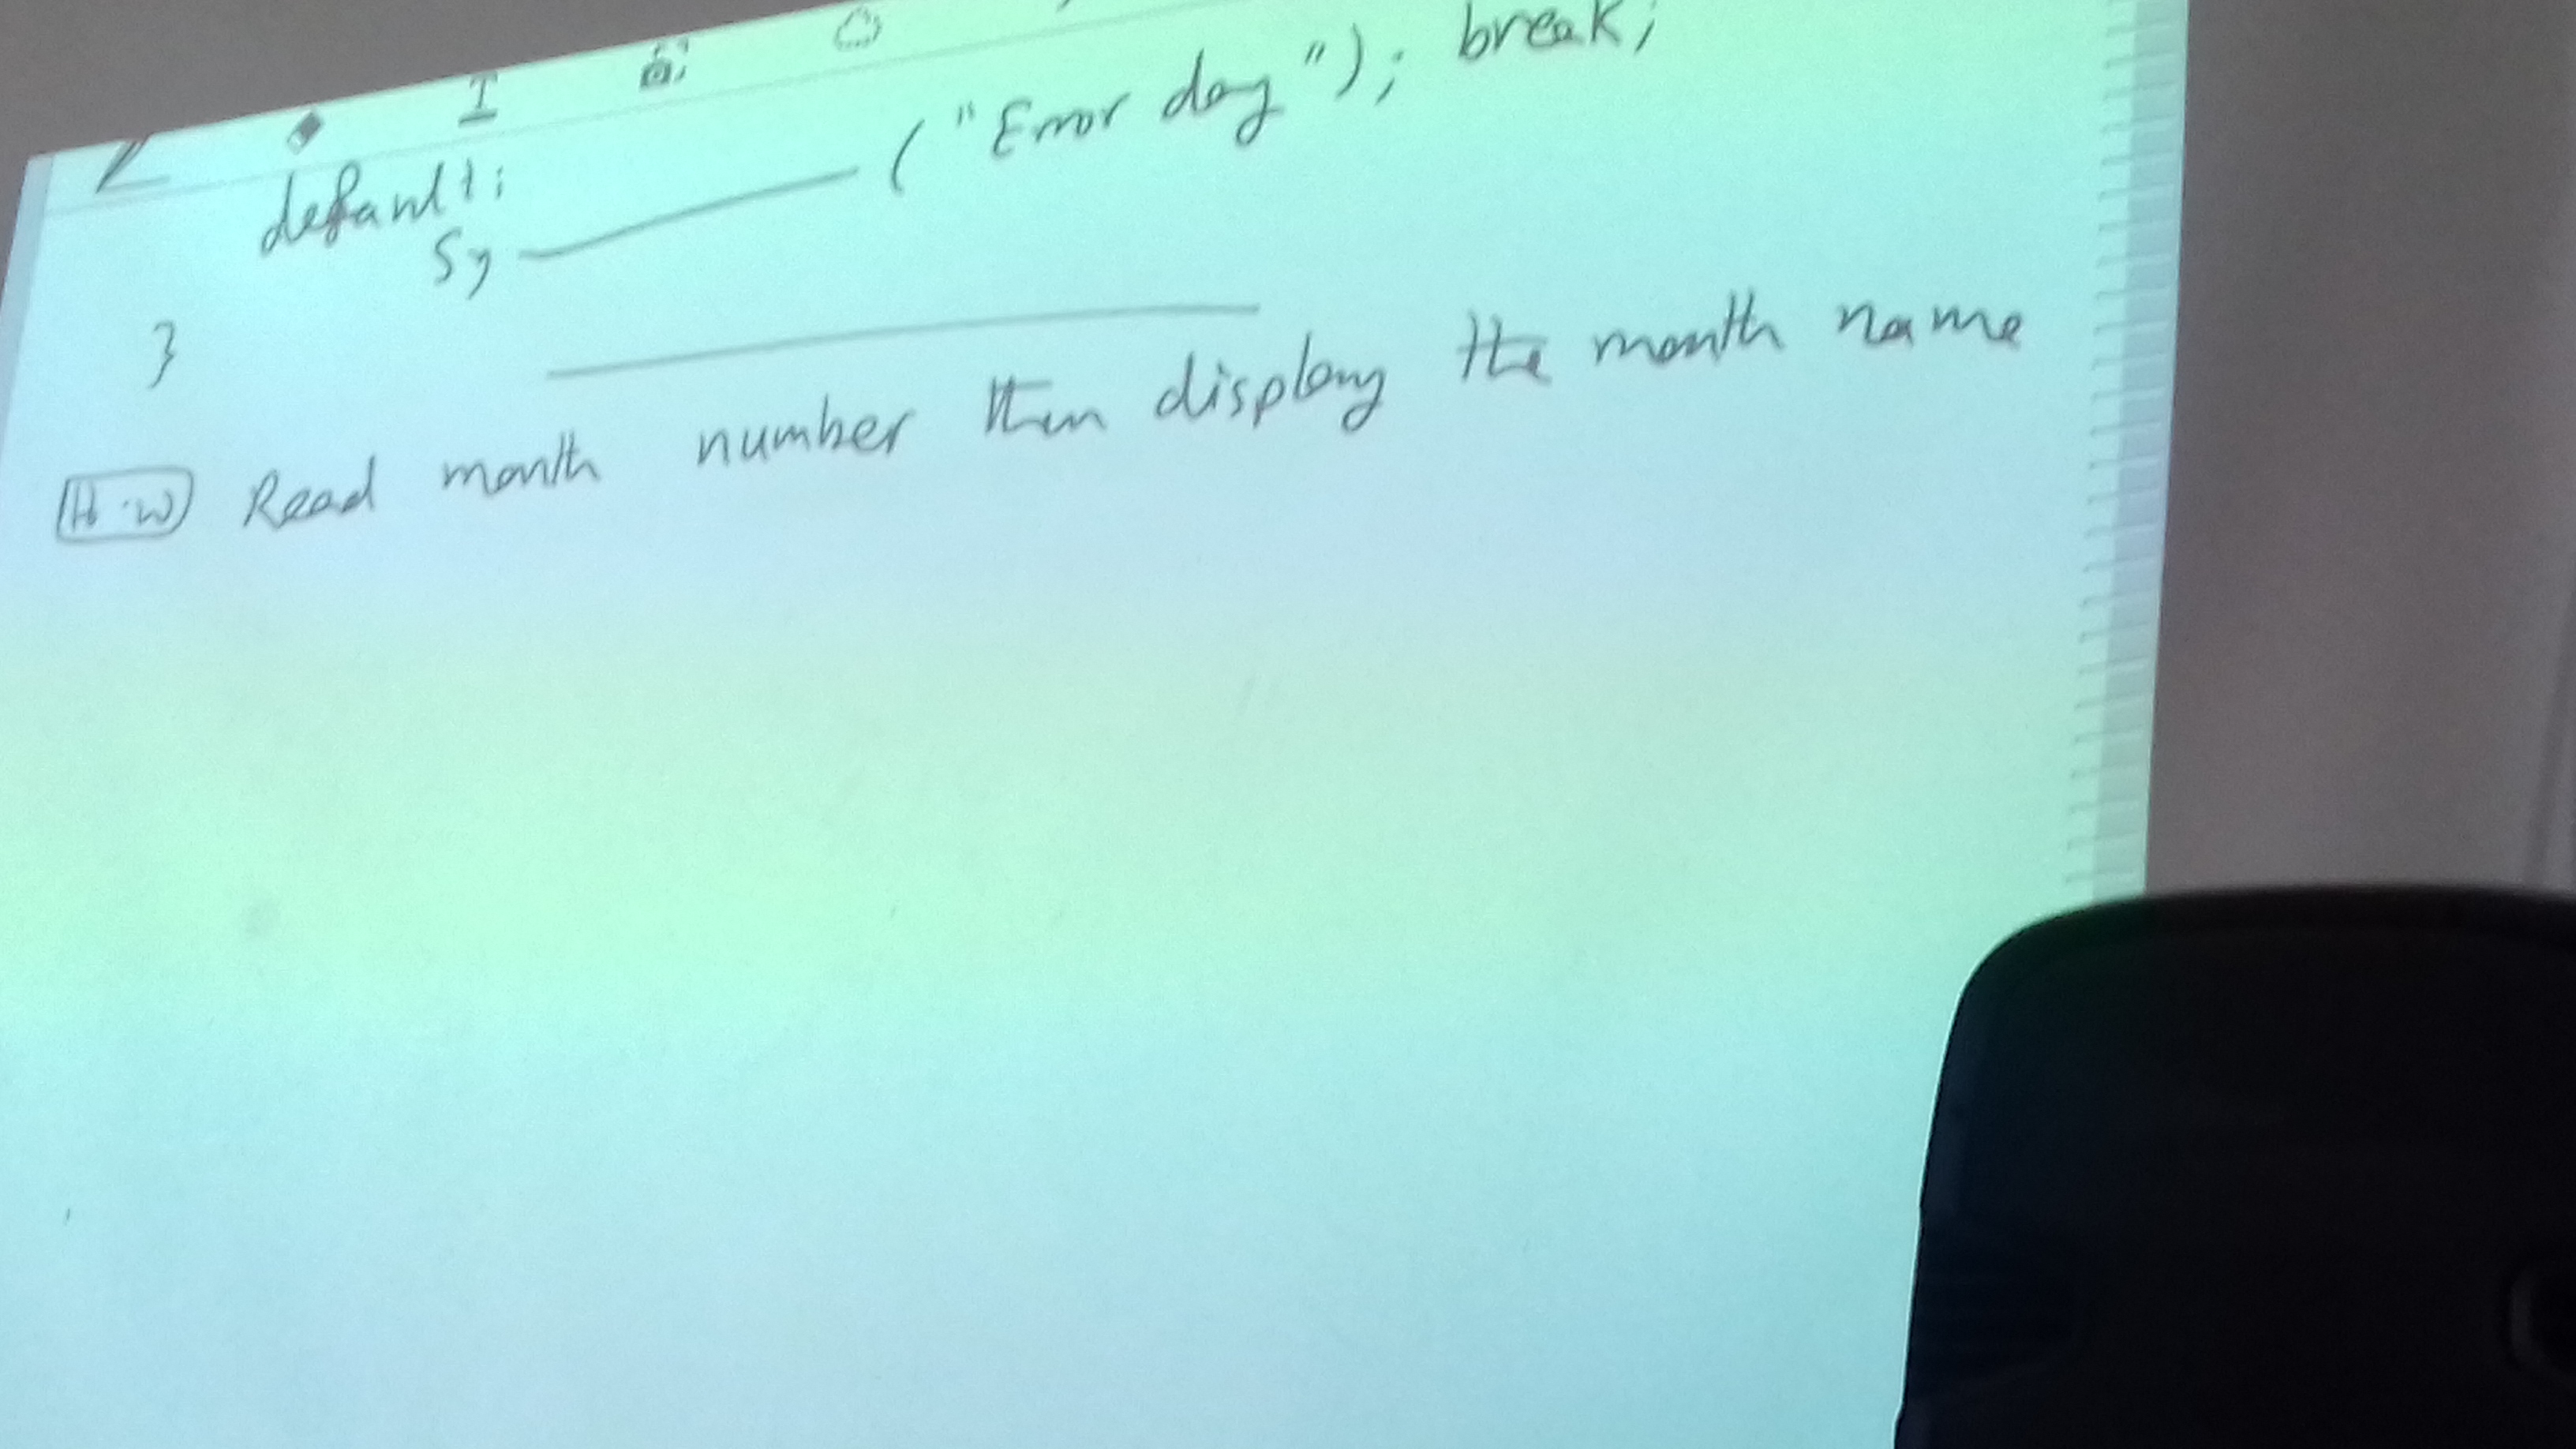 default:
Sy ——— ("Error day"); break;
}
H.W Read month number then display the month name